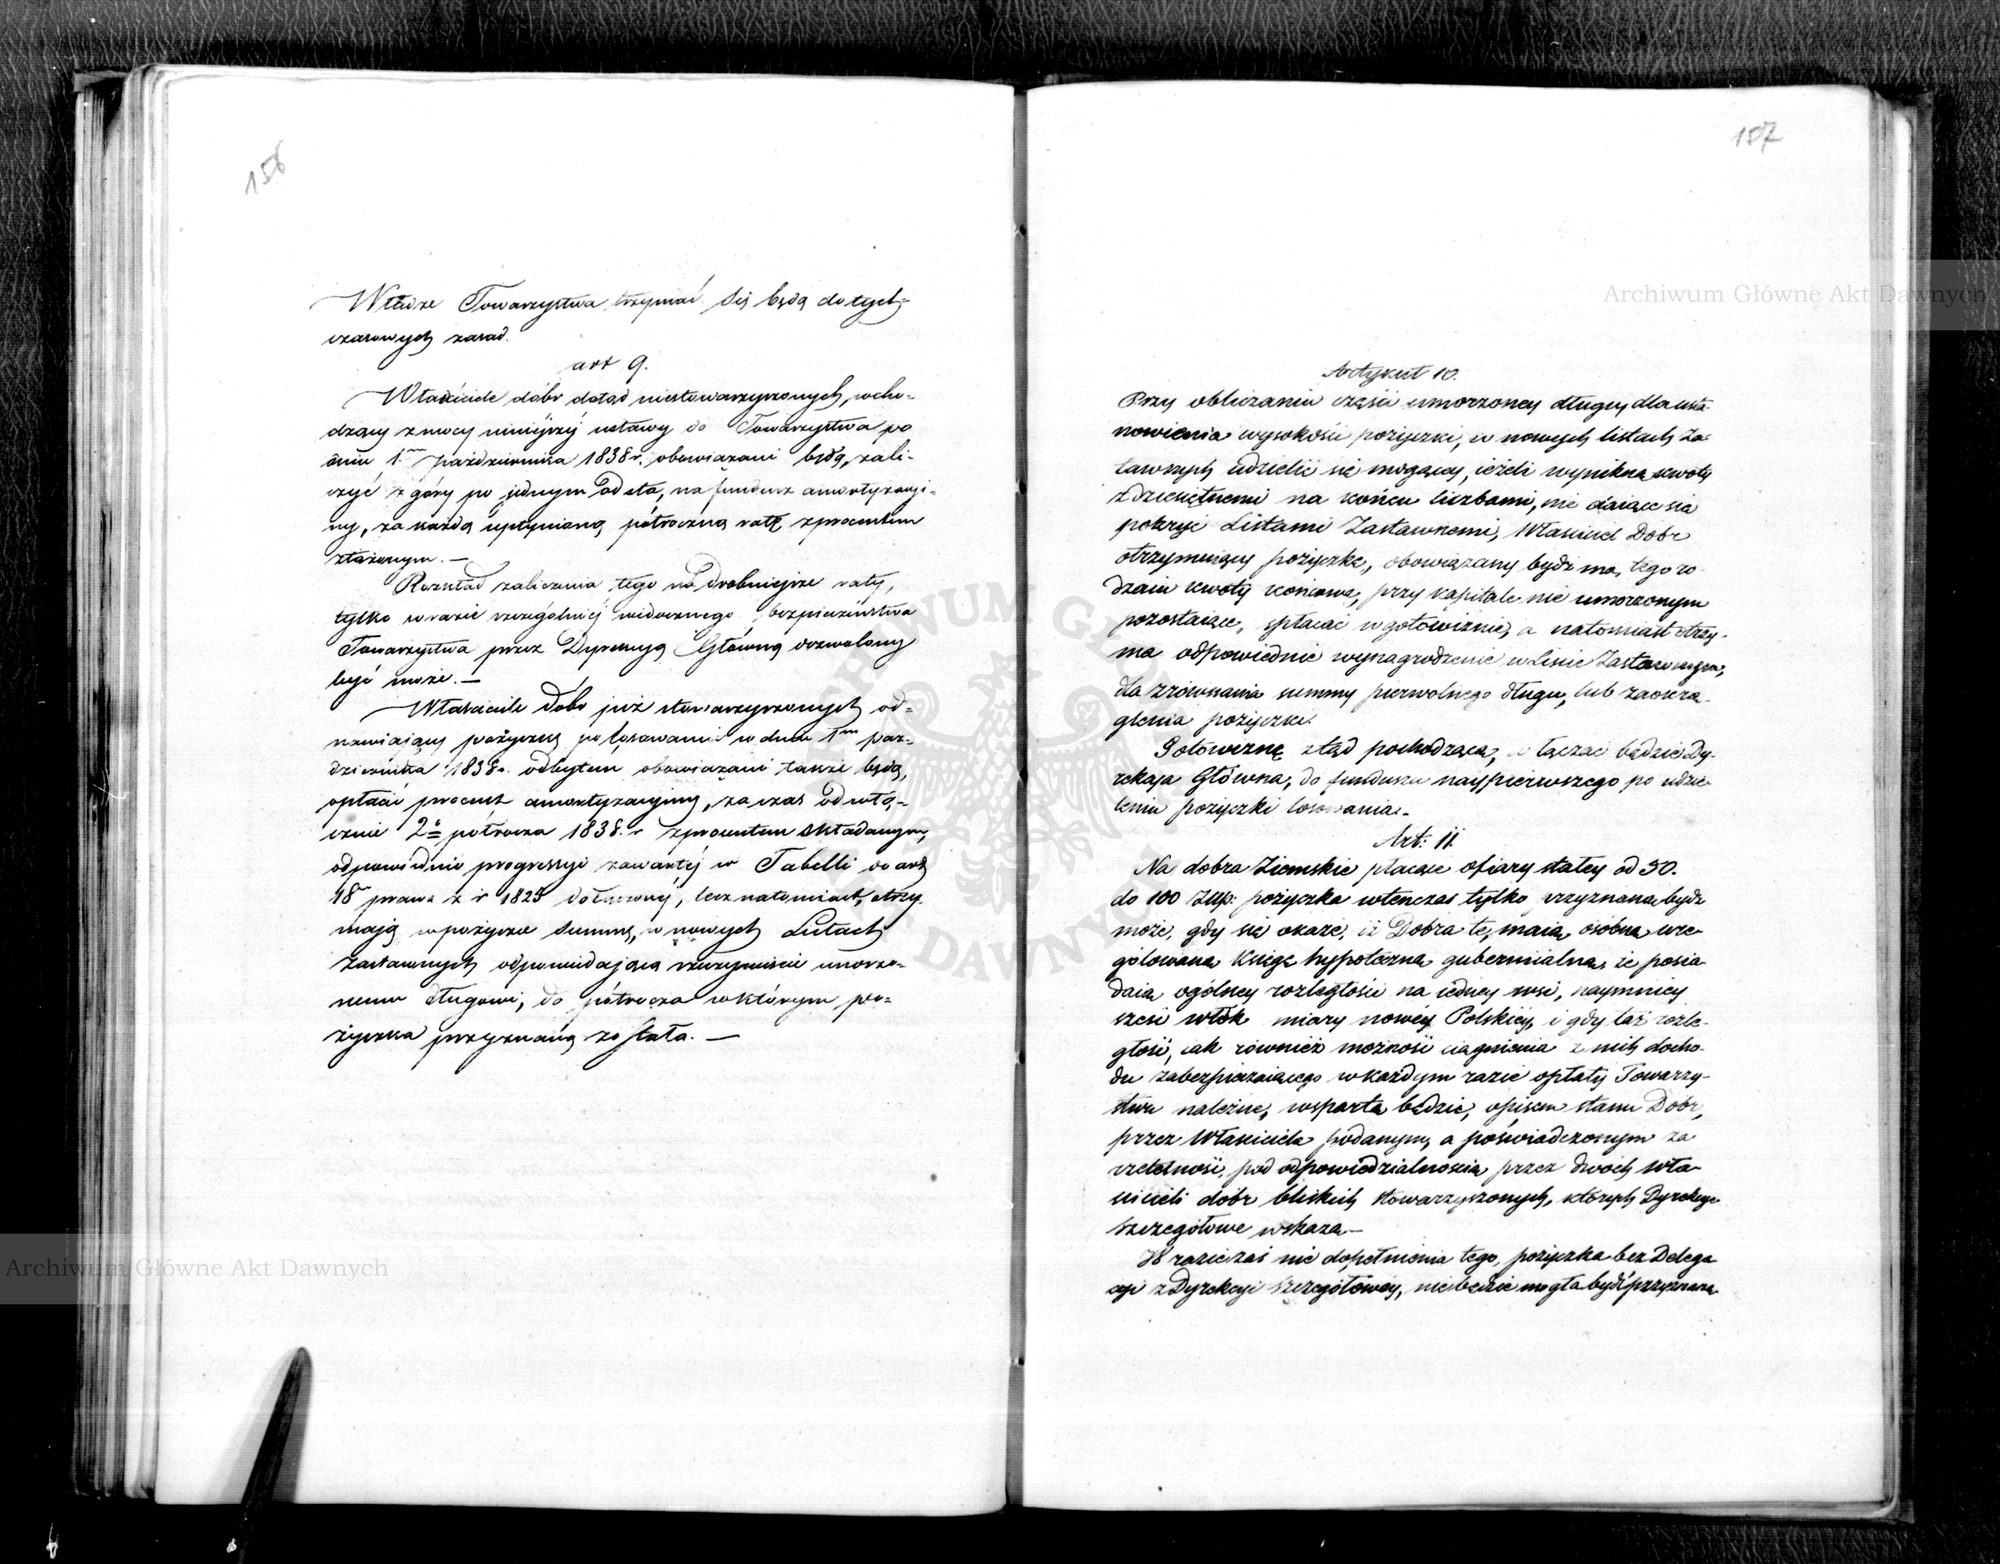 156
Władze Towarzystwa trzymać się będą dotych-
czasowych zasad.
art 9.
Właściciele dóbr dotąd niestowarzyszonych, wcho-
dzący z mocy niniejszéj ustawy do Towarzystwa po
dniu 1m października 1838 r. obowiązani będą, zali-
czyć z góry po jednym od sta, na fundusz amortyzacyj-
ny, za każdą upłynioną półroczną ratę z procentem
złożonym. —
Rozkład zaliczenia tego na drobniejsze raty,
tylko w razie szczególniéj widocznego bezpieczeństwa
Towarzystwa przez Dyrekcyą Główną dozwolony
być może. —
Właściciele dóbr już stowarzyszonych od-
nawiający pożyczkę po losowaniu w dniu 1m paź-
dziernika 1838 r. odbytem obowiązani także będą,
opłacić procent amortyzacyjny, za czas od włą-
cznie 2o półrocza 1838 r z procentem składanym,
odpowiednio progressyi zawartéj w Tabelli do art
18 prawa z r 1825 dołączonéj, lecz natomiast, otrzy-
mają w pożyczce Summę, w nowych Listach
Zastawnych odpowiadającą rzeczywiście umorzo-
nemu długowi, do półrocza w którym po-
życzka przyznaną została. —
157
Artykuł 10.
Przy obliczaniu części umorzoney długu, dla usta-
nowienia wysokości pożyczki, w nowych listach Za-
stawnych udzielić się mogącey, ieżeli wynikną kwoty
z dziesiętnemi na końcu liczbami, nie daiące się
pokryć Listami Zastawnemi, Właściciel Dóbr
otrzymuiący pożyczkę, obowiązany bydź ma, tego ro-
dzaiu kwotę końcową, przy kapitale nie umorzonym
pozostaiącą, spłacać w gotowiznie, a natomiast otrzy-
ma odpowiednie wynagrodzenie w Liście Zastawnym,
dla zrównania summy pierwotnego długu, lub zaokrą-
glenia pożyczki.
Gotowiznę ztąd pochodzącą, włączać będzie Dy-
rekcja Główna, do funduszu naypierwszego po udzie-
leniu pożyczki losowania. —
Art: 11.
Na dobra Ziemskie płacące ofiary stałey od 50.
do 100 Złłp: pożyczka wtenczas tylko przyznaną bydź
może, gdy się okaże, iż Dobra te, maią osóbną ure-
gulowaną Księgę hypoteczną gubernialną, że posia-
daią ogólney rozległości na iedney wsi, naymniey
sześć włók miary nowéy Polskiéy, i gdy taż rozle-
głość, iak również możność ciągnienia z nich docho-
du zabezpieczaiącego w każdym razie opłaty Towarzy-
stwu należne, wspartą będzie, opisem stanu Dóbr,
przez Właściciela podanym, a poświadczonym za
rzetelność, pod odpowiedzialnością przez dwóch wła-
ścicieli dóbr bliskich stowarzyszonych, których Dyrekcye
Szczegółowe wskażą. —
W razie zaś nie dopełnienia tego, pożyczka bez Delega-
cyi z Dyrekcyi Szczegółowéy, nie będzie mogła bydź przyznaną
Archiwum Główne Akt Dawnych
Archiwum Główne Akt Dawnych
ARCHIWUM GŁÓWNE AKT DAWNYCH